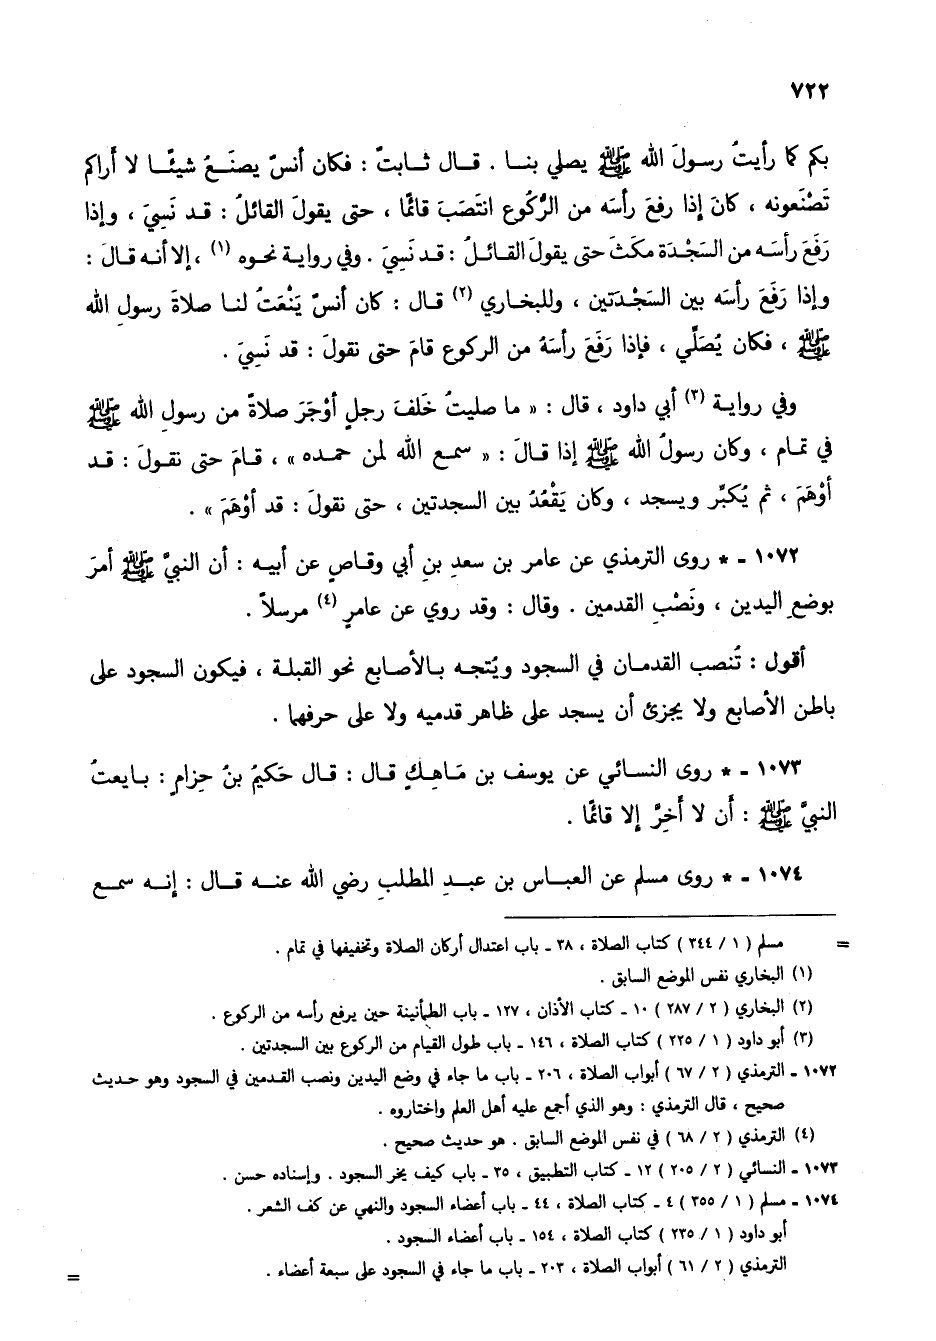 ٧٢٢
بكم كما رأيتُ رسولَ الله ﷺ يصلي بنا . قال ثابتٌ : فكان أنسٌ يصنَعُ شيئًا لا أراكم
تَصْنَعونه ، كانَ إذا رفعَ رأسَه من الرُّكوع انتَصَبَ قائمًا ، حتى يقولَ القائلُ : قد نَسِيَ ، وإذا
رَفَعَ رأسَه من السَجْدَة مكَثَ حتى يقولَ القائلُ : قد نَسِيَ . وفي رواية نحوه (١) ، إلا أنه قالَ :
وإذا رَفَعَ رأسَه بين السَجْدَتين ، وللبخاري (٢) قال : كان أنسٌ يَنْعَتُ لنا صلاةَ رسولِ الله
ﷺ ، فكان يُصَلِّي ، فإذا رَفَعَ رأسَهُ من الركوع قامَ حتى نقولَ : قد نَسِيَ .
وفي رواية (٣) أبي داود ، قال : « ما صليتُ خَلفَ رجلٍ أوْجَزَ صلاةً من رسولِ الله ﷺ
في تمام ، وكان رسولُ الله ﷺ إذا قالَ : « سمع الله لمن حمده » ، قامَ حتى نقولَ : قد
أوْهَمَ ، ثم يُكبِّر ويسجد ، وكان يَقْعُدُ بين السجدتين ، حتى نقولَ : قد أوْهَمَ » .
١٠٧٢ ـ * روى الترمذي عن عامر بن سعدِ بنِ أبي وقاصٍ عن أبيه : أن النبيَّ ﷺ أمرَ
بوضعِ اليدين ، ونَصْبِ القدمين . وقال : وقد روي عن عامرٍ (٤) مرسلاً .
أقول : تُنصب القدمان في السجود ويُتجه بالأصابع نحو القبلة ، فيكون السجود على
باطن الأصابع ولا يجزئ أن يسجد على ظاهر قدميه ولا على حرفهما .
١٠٧٣ ـ * روى النسائي عن يوسف بن مَاهِكٍ قال : قال حَكيمُ بنُ حِزامٍ : بايعتُ
النبيَّ ﷺ : أن لا أَخِرَّ إلا قائمًا .
١٠٧٤ ـ * روى مسلم عن العباس بن عبدِ المطلبِ رضي الله عنه قال : إنه سمع
= مسلم ( ١ / ٣٤٤ ) كتاب الصلاة ، ٣٨ ـ باب اعتدال أركان الصلاة وتخفيفها في تمام .
(١) البخاري نفس الموضع السابق .
(٢) البخاري ( ٢ / ٢٨٧ ) ١٠ ـ كتاب الأذان ، ١٢٧ ـ باب الطمأنينة حين يرفع رأسه من الركوع .
(٣) أبو داود ( ١ / ٢٢٥ ) كتاب الصلاة ، ١٤٦ ـ باب طول القيام من الركوع بين السجدتين .
١٠٧٢ ـ الترمذي ( ٢ / ٦٧ ) أبواب الصلاة ، ٢٠٦ ـ باب ما جاء في وضع اليدين ونصب القدمين في السجود وهو حديث
صحيح ، قال الترمذي : وهو الذي أجمع عليه أهل العلم واختاروه .
(٤) الترمذي ( ٢ / ٦٨ ) في نفس الموضع السابق . هو حديث صحيح .
١٠٧٣ ـ النسائي ( ٢ / ٢٠٥ ) ١٢ ـ كتاب التطبيق ، ٣٥ ـ باب كيف يخر السجود . وإسناده حسن .
١٠٧٤ ـ مسلم ( ١ / ٣٥٥ ) ٤ ـ كتاب الصلاة ، ٤٤ ـ باب أعضاء السجود والنهي عن كف الشعر .
أبو داود ( ١ / ٢٣٥ ) كتاب الصلاة ، ١٥٤ ـ باب أعضاء السجود .
الترمذي ( ٢ / ٦١ ) أبواب الصلاة ، ٢٠٣ ـ باب ما جاء في السجود على سبعة أعضاء . =